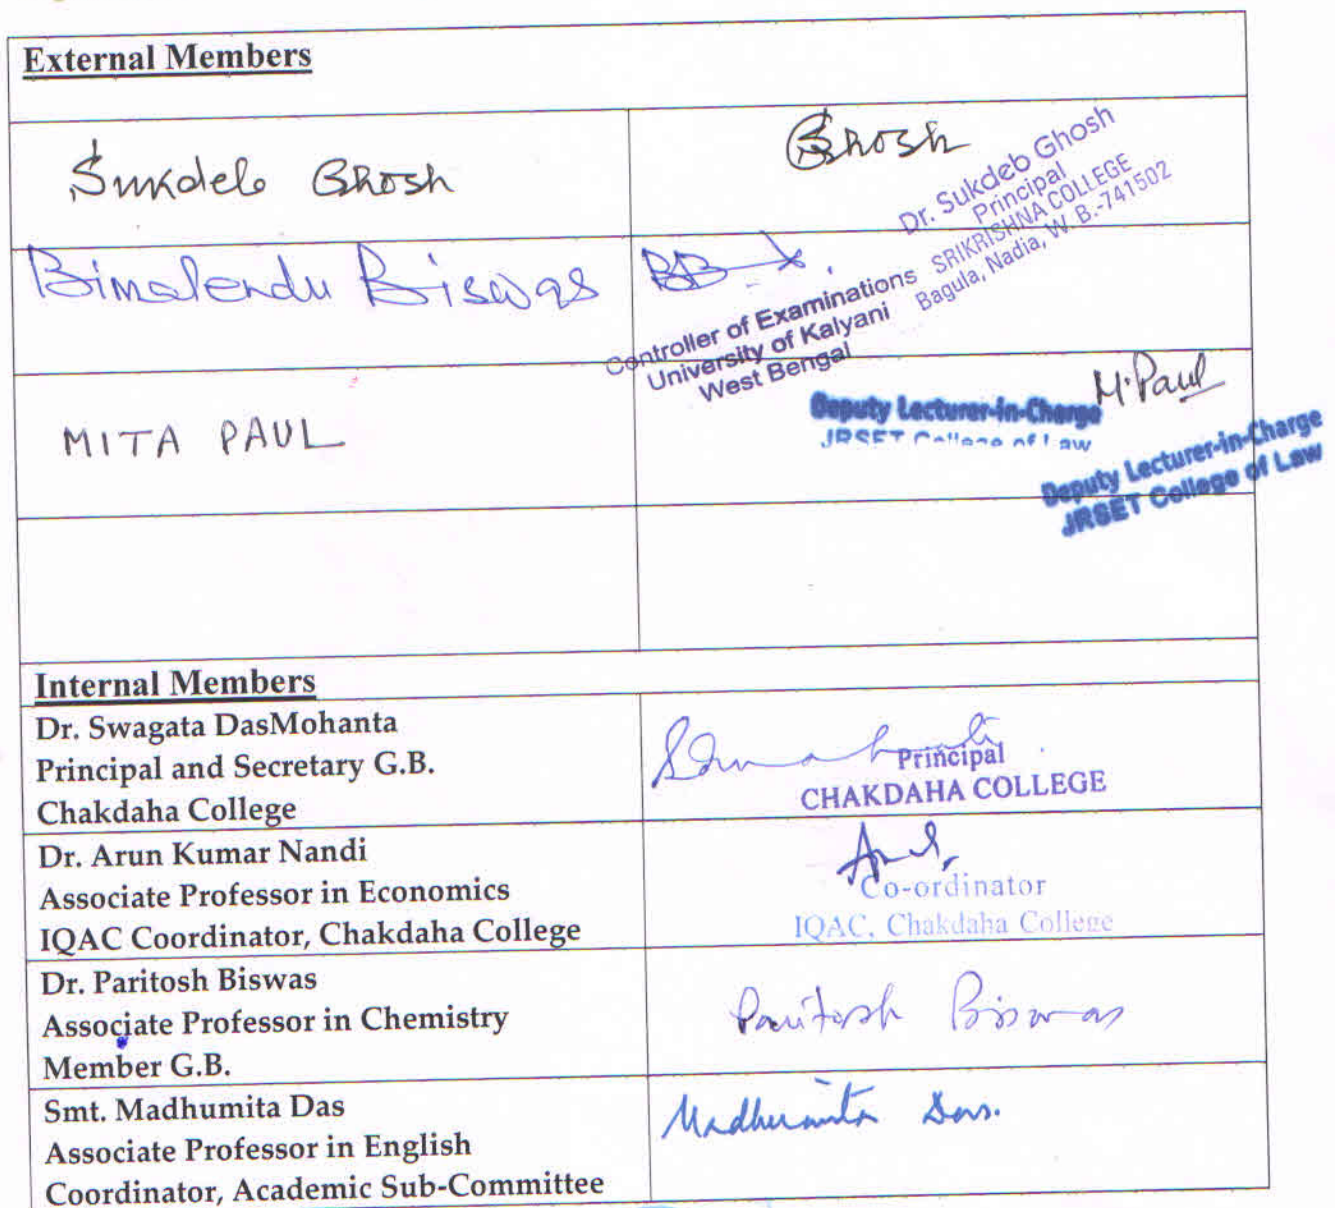 External Members
Sukdeb Ghosh
Ghosh
Dr. Sukdeb Ghosh
Principal
SRIKRISHNA COLLEGE
Bagula, Nadia, W. B.-741502
Bimalendu Biswas
Controller of Examinations
University of Kalyani
West Bengal
MITA PAUL
M. Paul
Deputy Lecturer-in-Charge
JRSET College of Law
Deputy Lecturer-in-Charge
JRSET College of Law
Internal Members
Dr. Swagata DasMohanta
Principal and Secretary G.B.
Chakdaha College
Principal
CHAKDAHA COLLEGE
Dr. Arun Kumar Nandi
Associate Professor in Economics
IQAC Coordinator, Chakdaha College
Co-ordinator
IQAC, Chakdaha College
Dr. Paritosh Biswas
Associate Professor in Chemistry
Member G.B.
Paritosh Biswas
Smt. Madhumita Das
Associate Professor in English
Coordinator, Academic Sub-Committee
Madhumita Das.